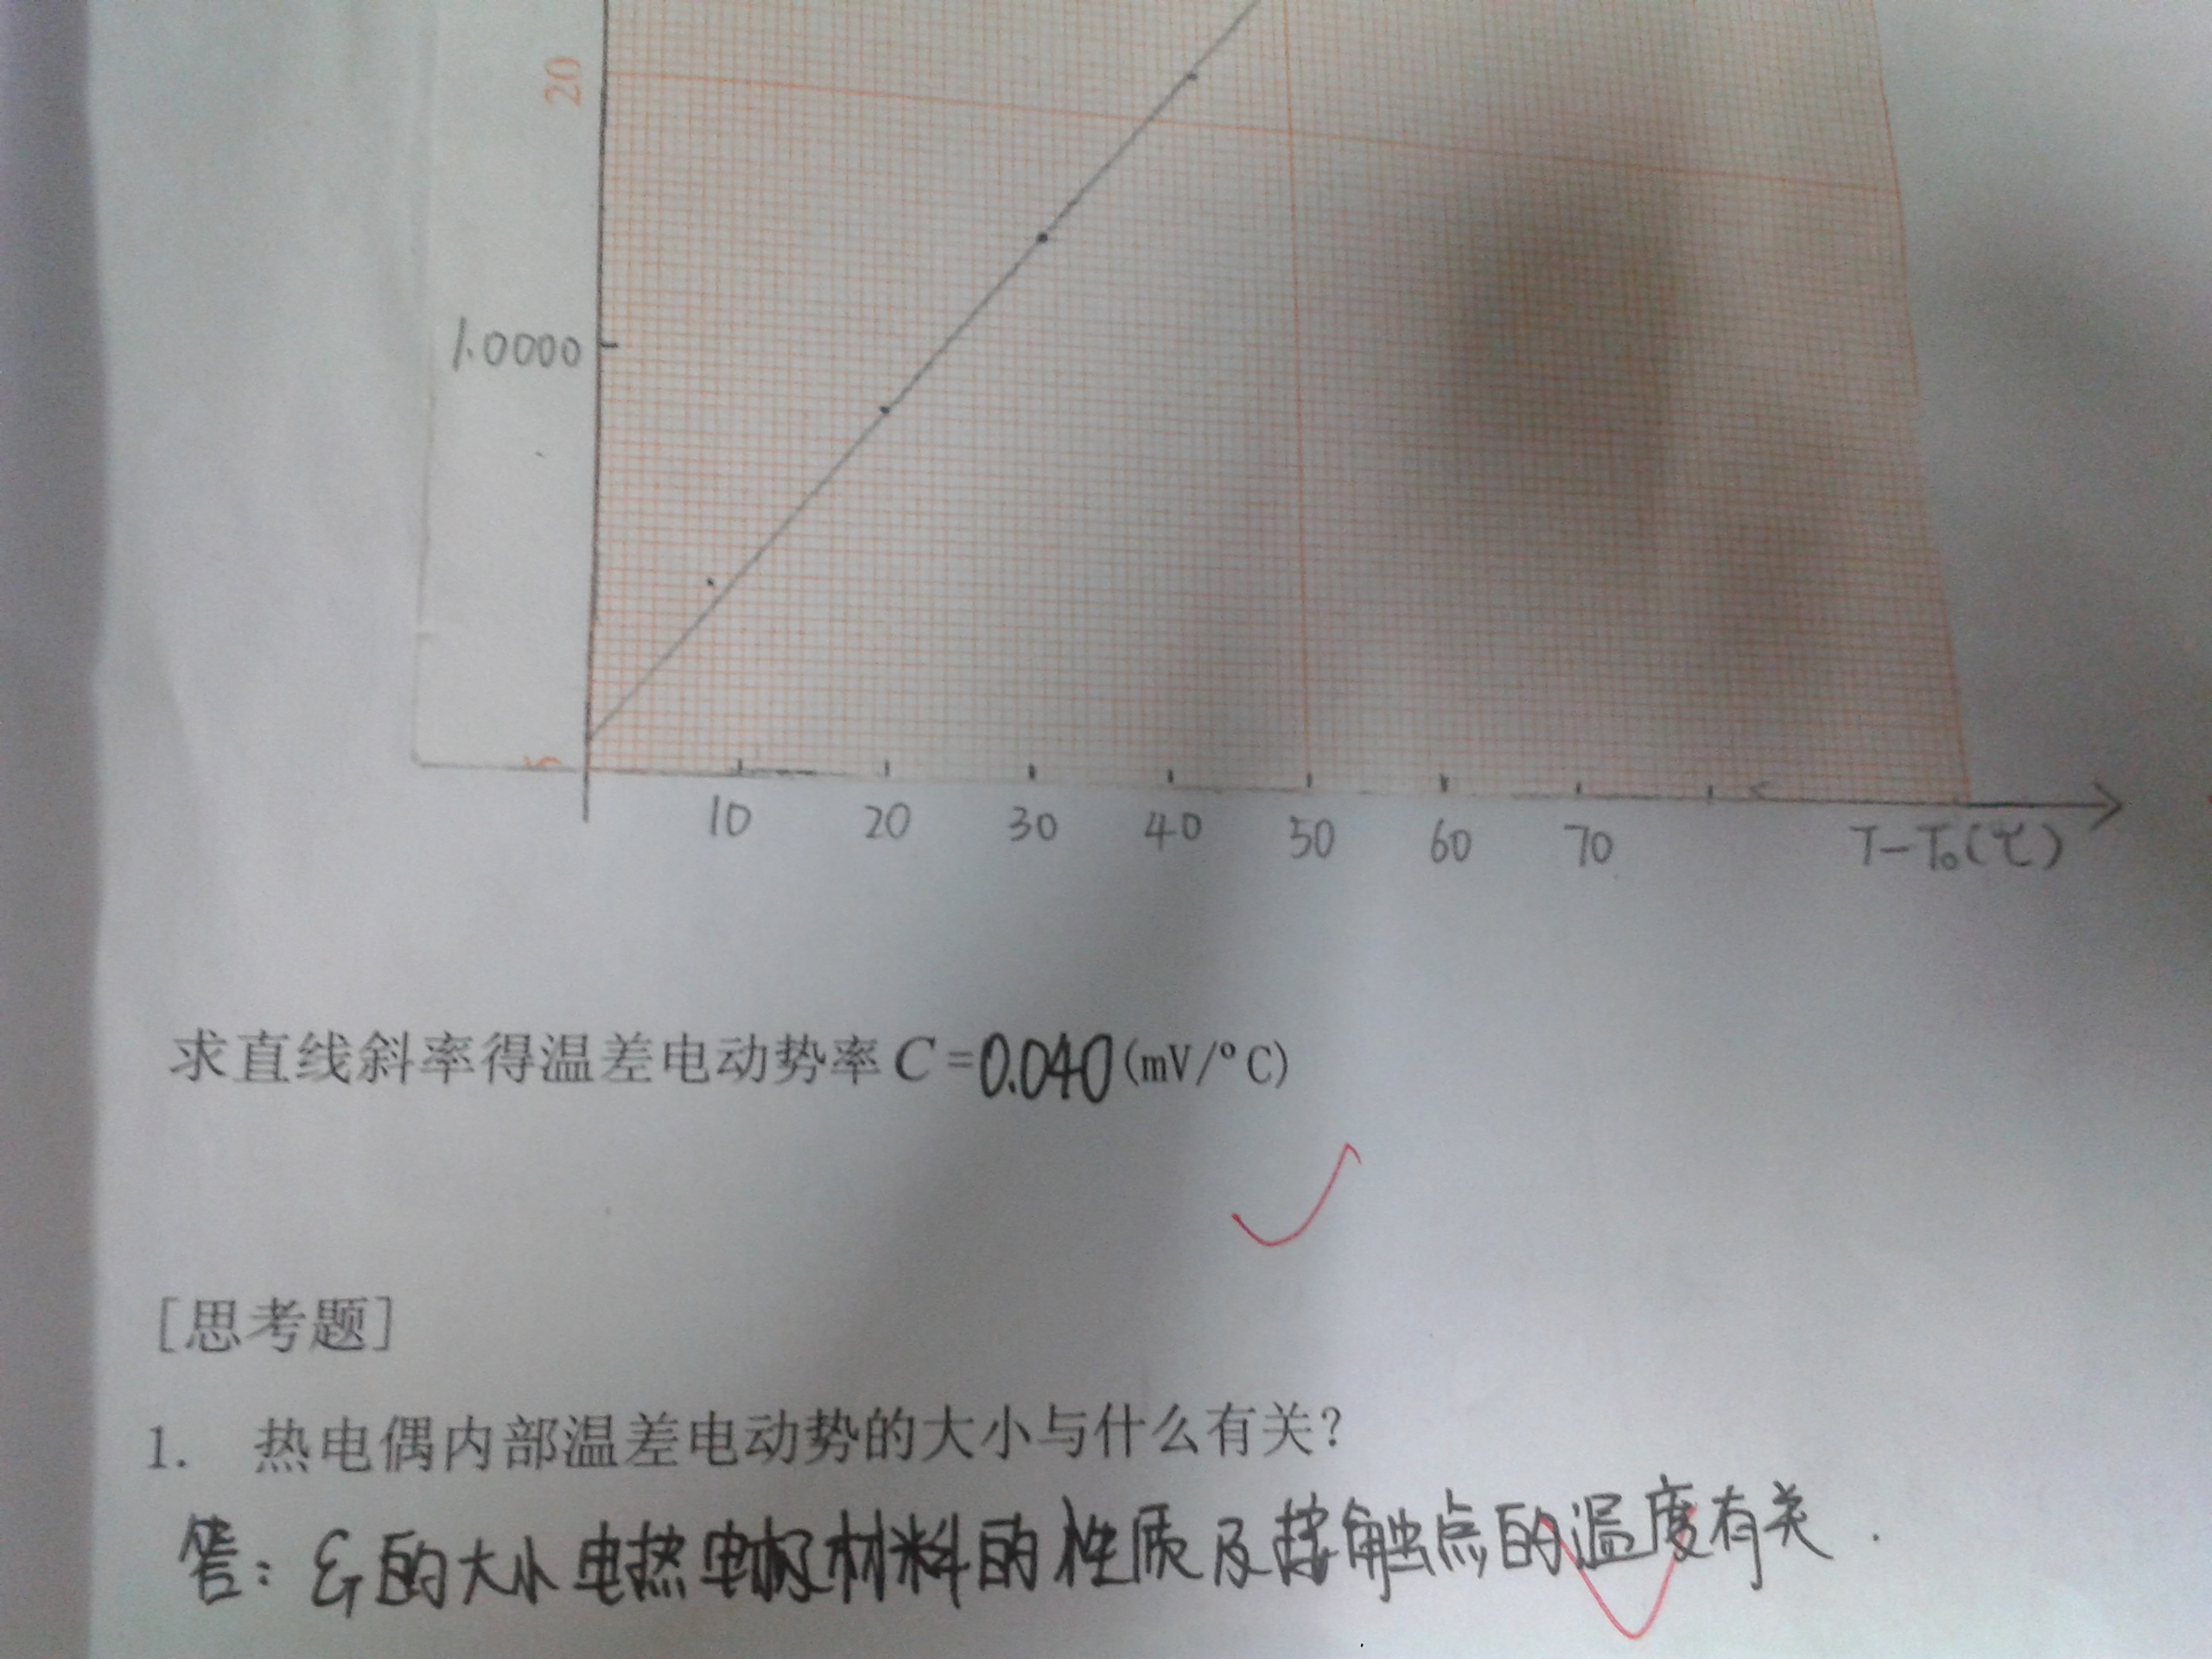 20
1.0000
5
10 20 30 40 50 60 70 T-T₀(℃)
求直线斜率得温差电动势率C=0.040(mV/°C)
[思考题]
1. 热电偶内部温差电动势的大小与什么有关?
答:的大小由热电极材料的性质及接触点的温度有关.